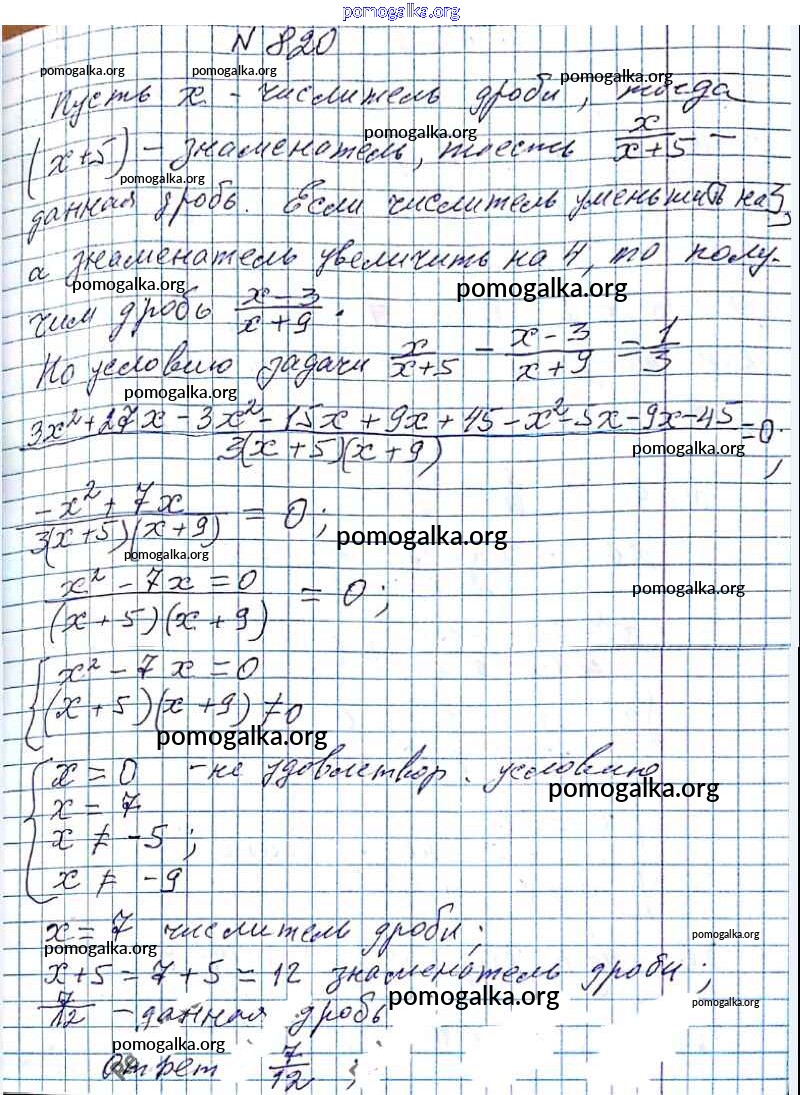 pomogalka.org
N 820
pomogalka.org pomogalka.org pomogalka.org
Пусть x - числитель дроби, тогда
pomogalka.org
(x+5) - знаменатель, тоесть x/(x+5) -
pomogalka.org
данная дробь. Если числитель уменьшить на 3,
а знаменатель увеличить на 4, то полу-
pomogalka.org pomogalka.org
чим дробь (x-3)/(x+9).
По условию задачи x/(x+5) - (x-3)/(x+9) = 1/3
pomogalka.org
(3x²+27x-3x²-15x+9x+45-x²-5x-9x-45)/(3(x+5)(x+9)) = 0;
pomogalka.org
(-x²+7x)/(3(x+5)(x+9)) = 0;
pomogalka.org
pomogalka.org
(x²-7x=0)/((x+5)(x+9)) = 0;
pomogalka.org
{ x²-7x=0
(x+5)(x+9)≠0
pomogalka.org
{ x=0 - не удовлетвор. условию
pomogalka.org
x=7
x≠-5;
x≠-9
x=7 числитель дроби;
pomogalka.org pomogalka.org
x+5=7+5=12 знаменатель дроби;
pomogalka.org pomogalka.org
7/12 - данная дробь
pomogalka.org
Ответ 7/12;